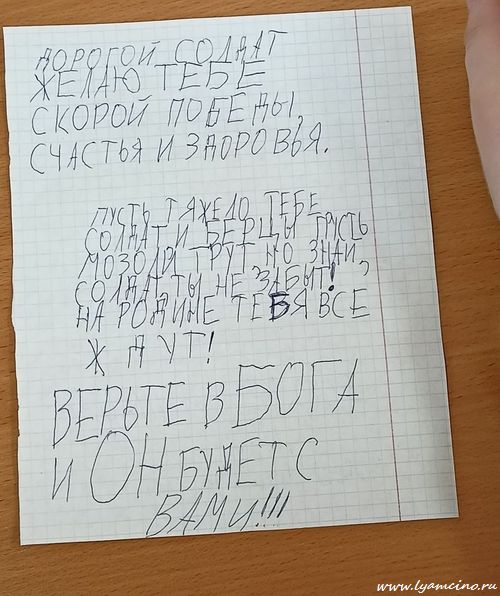 ДОРОГОЙ СОЛДАТ
ЖЕЛАЮ ТЕБЕ
СКОРОЙ ПОБЕДЫ,
СЧАСТЬЯ И ЗДОРОВЬЯ.
ПУСТЬ ТЯЖЕЛО ТЕБЕ
СОЛДАТ И БЕРЦЫ ПУСТЬ
МОЗОЛИ ТРУТ НО ЗНАЙ,
СОЛДАТ ТЫ НЕ ЗАБЫТ!
НА РОДИНЕ ТЕБЯ ВСЕ
ЖДУТ!
ВЕРЬТЕ В БОГА
И ОН БУДЕТ С
ВАМИ!!!!
www.lyamcino.ru